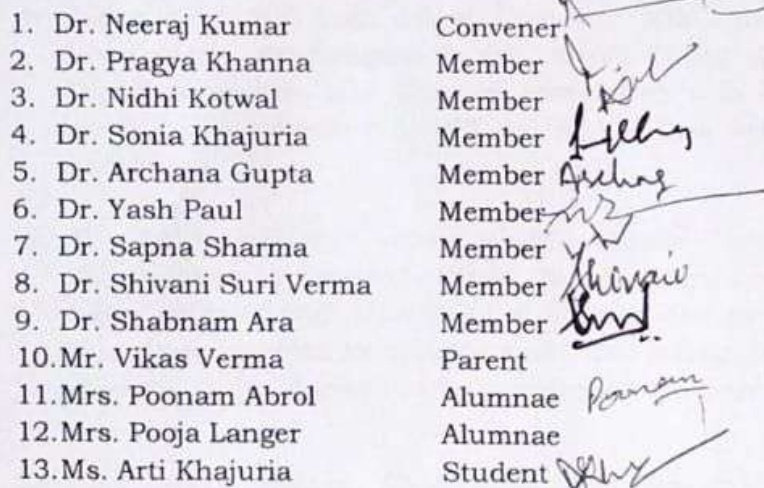 1. Dr. Neeraj Kumar Convener
2. Dr. Pragya Khanna Member
3. Dr. Nidhi Kotwal Member
4. Dr. Sonia Khajuria Member
5. Dr. Archana Gupta Member
6. Dr. Yash Paul Member
7. Dr. Sapna Sharma Member
8. Dr. Shivani Suri Verma Member Shivani
9. Dr. Shabnam Ara Member
10.Mr. Vikas Verma Parent
11.Mrs. Poonam Abrol Alumnae Poonam
12.Mrs. Pooja Langer Alumnae
13.Ms. Arti Khajuria Student